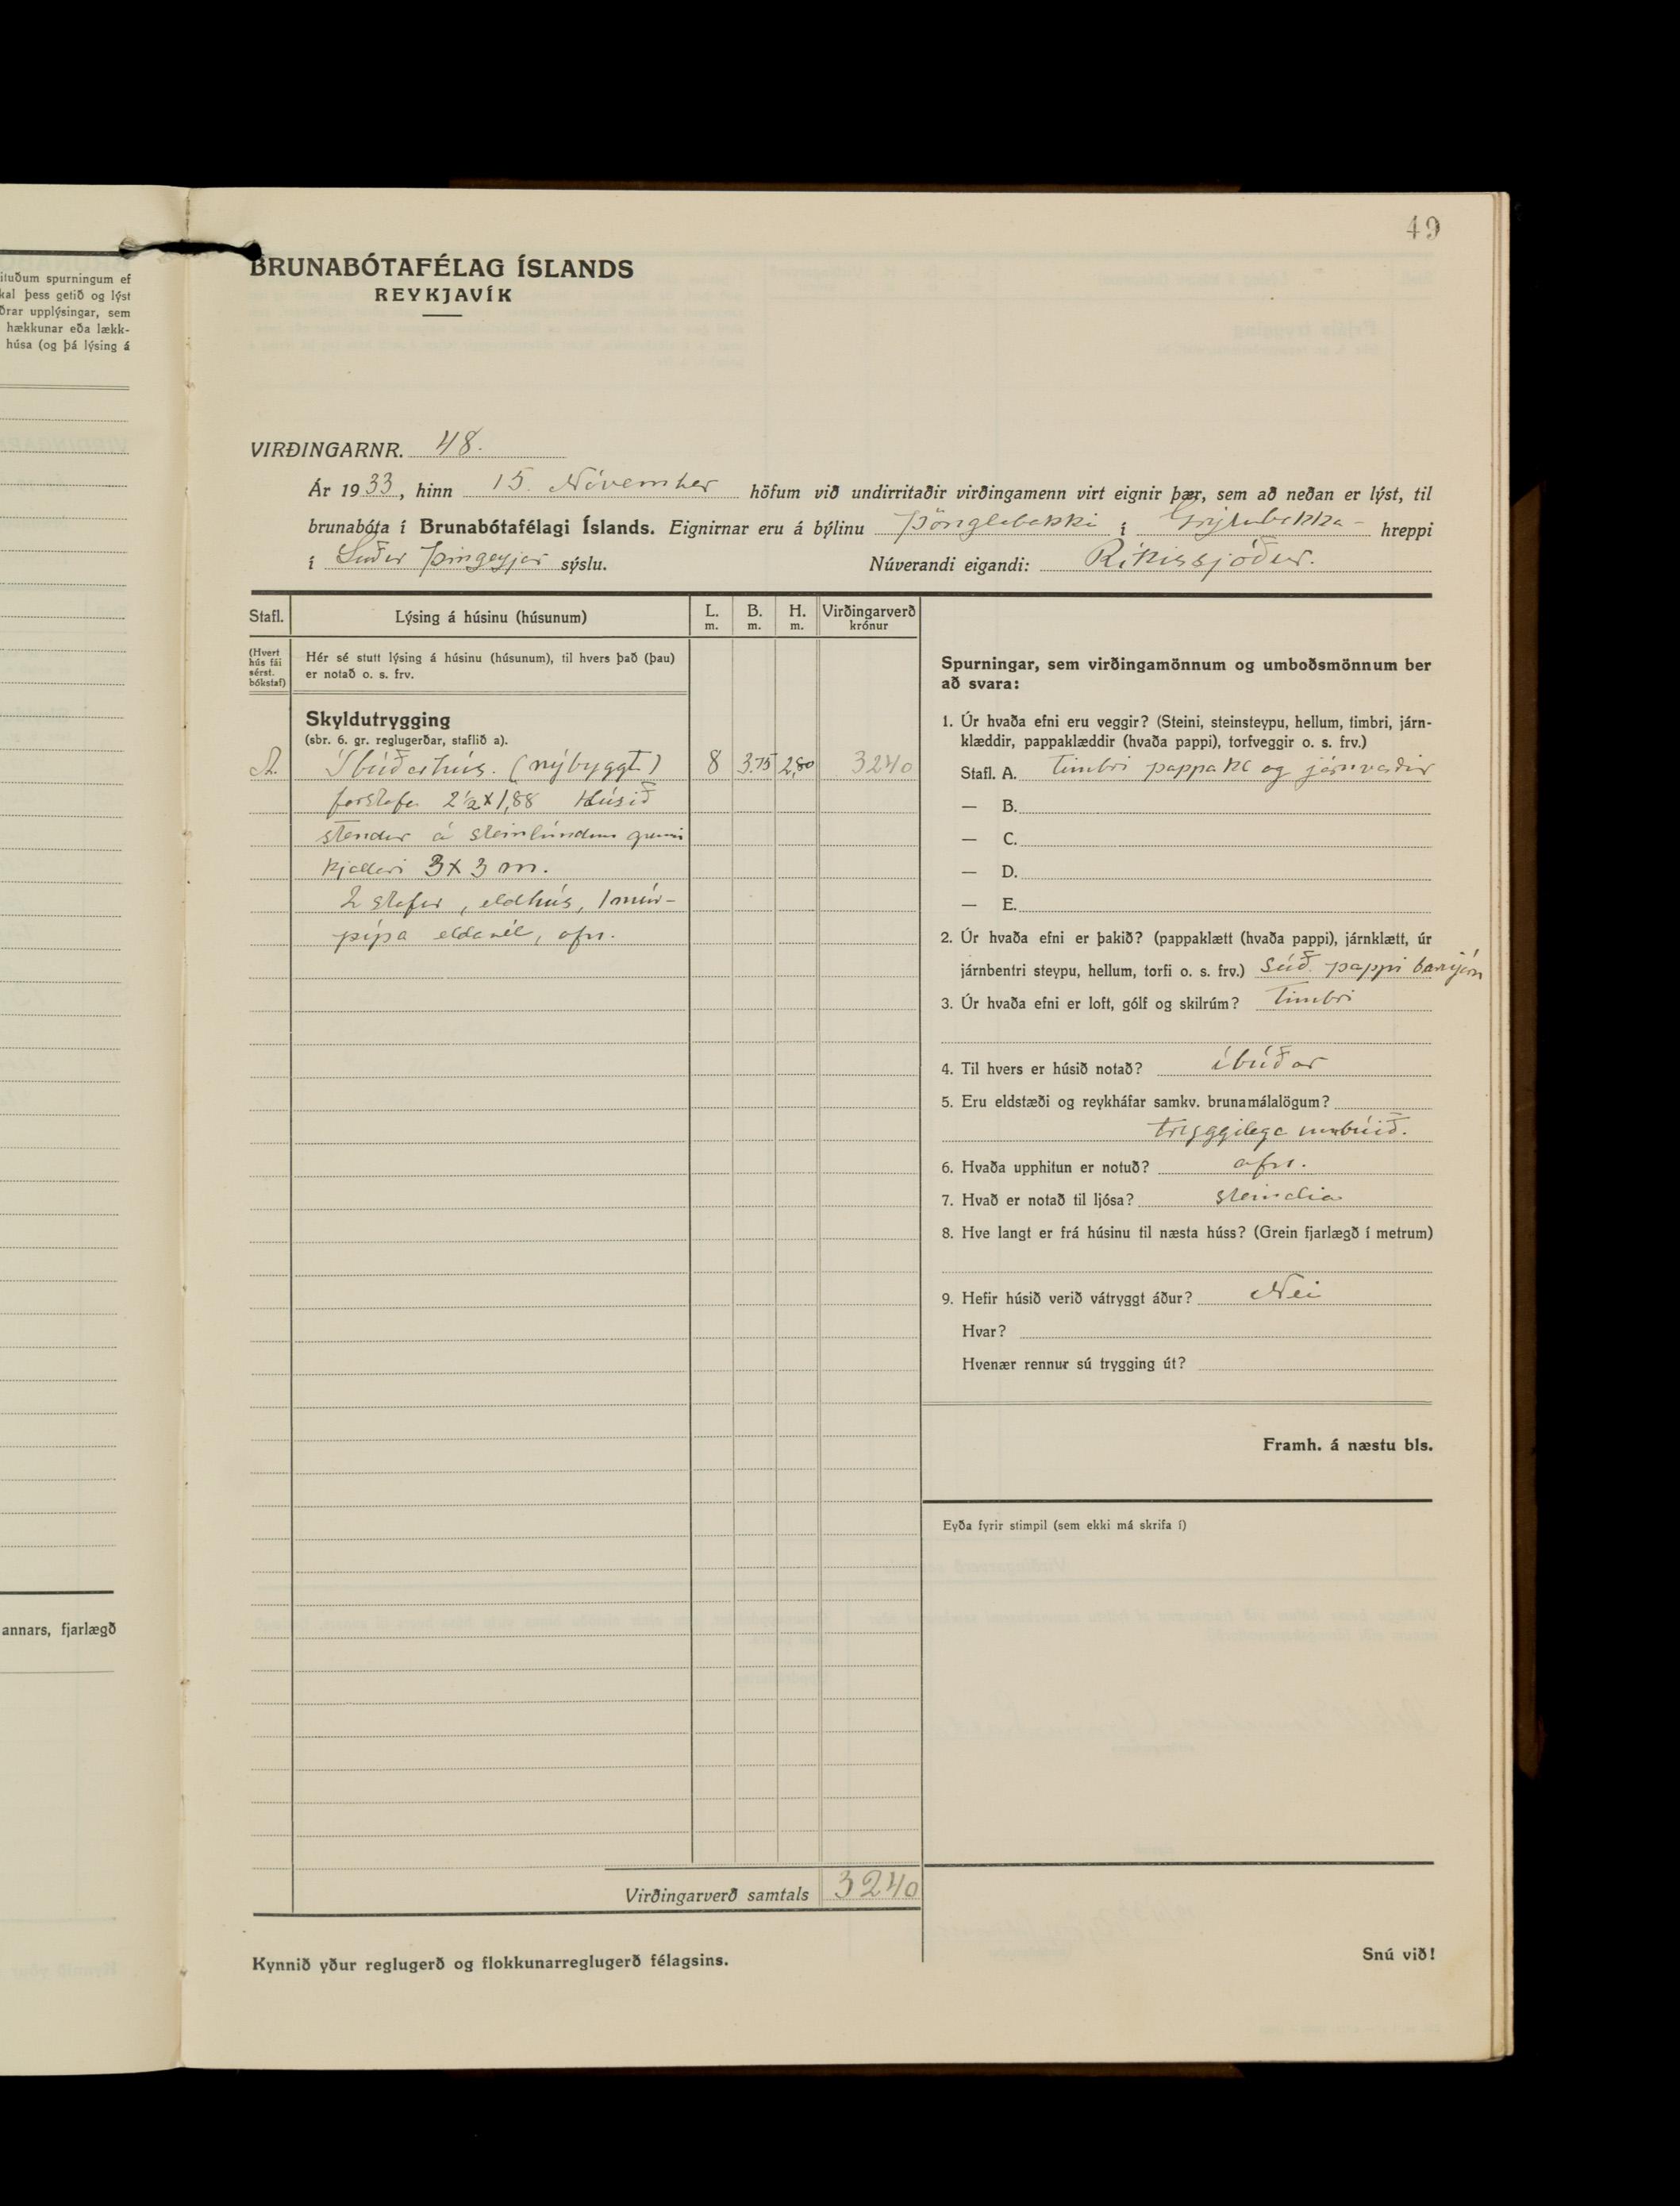 ituðum spurningum ef
kal þess getið og lýst
ðrar upplýsingar, sem
hækkunar eða lækk-
húsa (og þá lýsing á
annars, fjarlægð
49
BRUNABÓTAFÉLAG ÍSLANDS
REYKJAVÍK
VIRÐINGARNR. 48.
Ár 1933, hinn 15. Nóvember höfum við undirritaðir virðingamenn virt eignir þær, sem að neðan er lýst, til
brunabóta í Brunabótafélagi Íslands. Eignirnar eru á býlinu Þönglabakki í Grýtubakka- hreppi
í Suður Þingeyjar sýslu. Núverandi eigandi: Ríkissjóður.
Stafl. Lýsing á húsinu (húsunum) L. m. B. m. H. m. Virðingarverð krónur
(Hvert hús fái sérst. bókstaf)
Hér sé stutt lýsing á húsinu (húsunum), til hvers það (þau)
er notað o. s. frv.
Skyldutrygging
(sbr. 6. gr. reglugerðar, staflið a).
A. Íbúðarhús. (nýbyggt) 8 3.75 2,80 3240
forstofa 2½ x 1,88 Húsið
stendur á steinlímdum grunni
kjallari 3 x 3 m.
2 stofur, eldhús, 1 múr-
pípa eldavél, ofn.
Virðingarverð samtals 3240
Kynnið yður reglugerð og flokkunarreglugerð félagsins.
Spurningar, sem virðingamönnum og umboðsmönnum ber
að svara:
1. Úr hvaða efni eru veggir? (Steini, steinsteypu, hellum, timbri, járn-
klæddir, pappaklæddir (hvaða pappi), torfveggir o. s. frv.)
Stafl. A. timbri pappa kl og járnvarðir
— B.
— C.
— D.
— E.
2. Úr hvaða efni er þakið? (pappaklætt (hvaða pappi), járnklætt, úr
járnbentri steypu, hellum, torfi o. s. frv.) Súð. pappi bárujárn
3. Úr hvaða efni er loft, gólf og skilrúm? timbri
4. Til hvers er húsið notað? íbúðar
5. Eru eldstæði og reykháfar samkv. brunamálalögum?
tryggilega umbúið.
6. Hvaða upphitun er notuð? ofn.
7. Hvað er notað til ljósa? steinolia
8. Hve langt er frá húsinu til næsta húss? (Grein fjarlægð í metrum)
9. Hefir húsið verið vátryggt áður? Nei
Hvar?
Hvenær rennur sú trygging út?
Framh. á næstu bls.
Eyða fyrir stimpil (sem ekki má skrifa í)
Snú við!